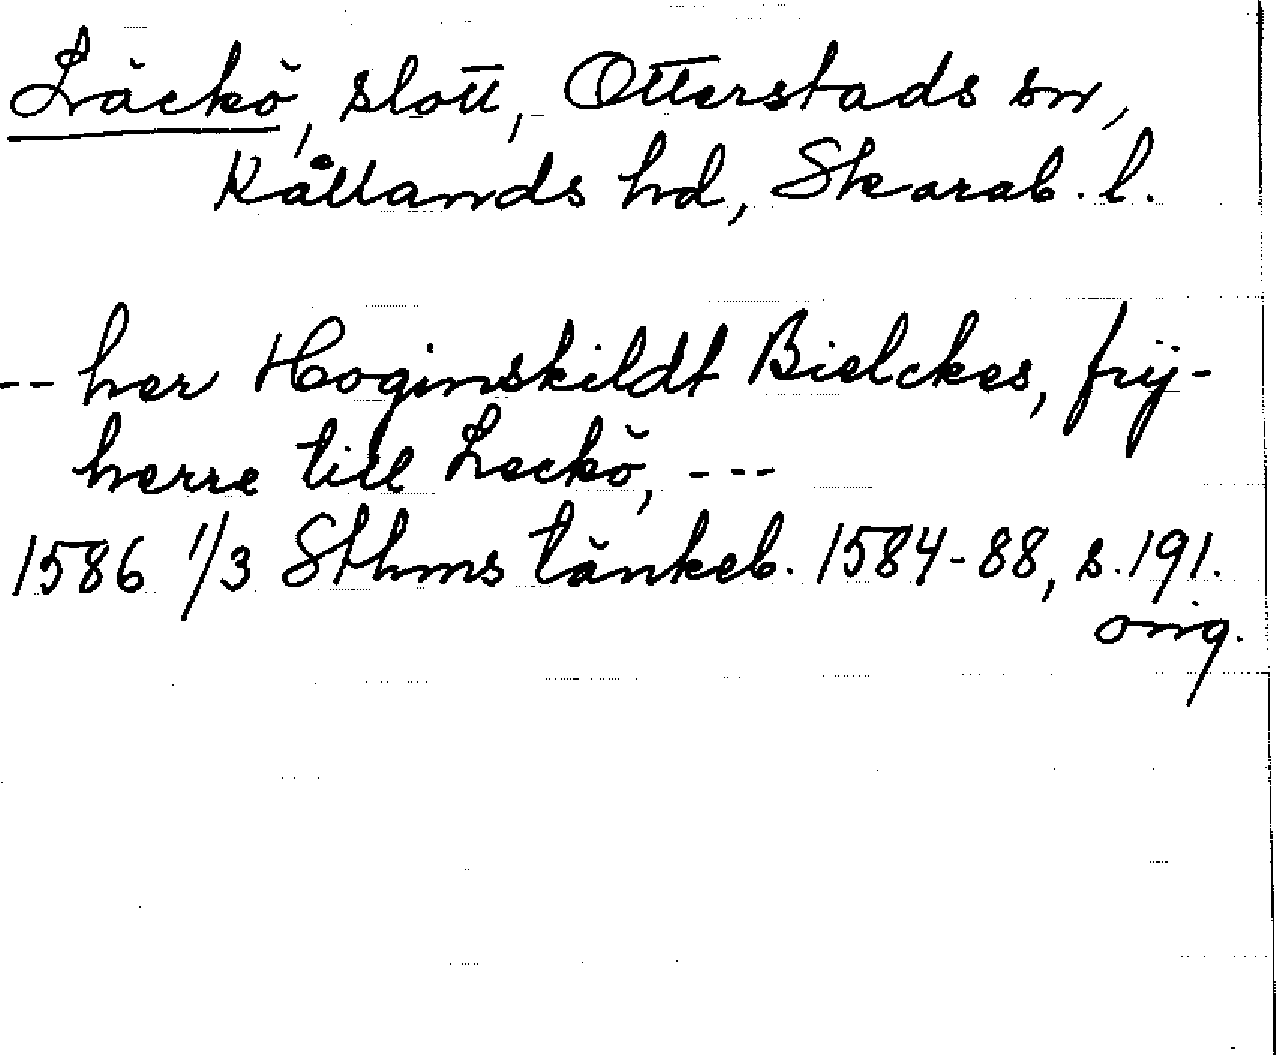 Läckö, slott, Otterstads sn,
Kållands hd, Skarab. l.
-- her Hoginskildt Bielckes, frij-
herre till Leckö, ---
1586 1/3 Sthms tänkeb. 1584-88, s. 191.
orig.